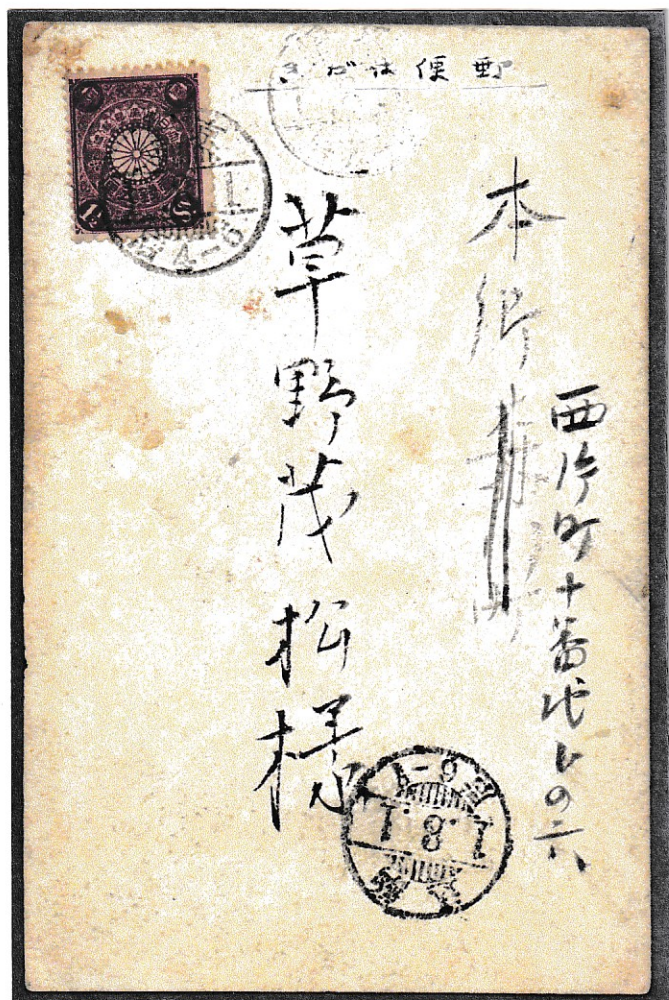 郵便はがき
本郷
西片町十番地との六
草野茂松様